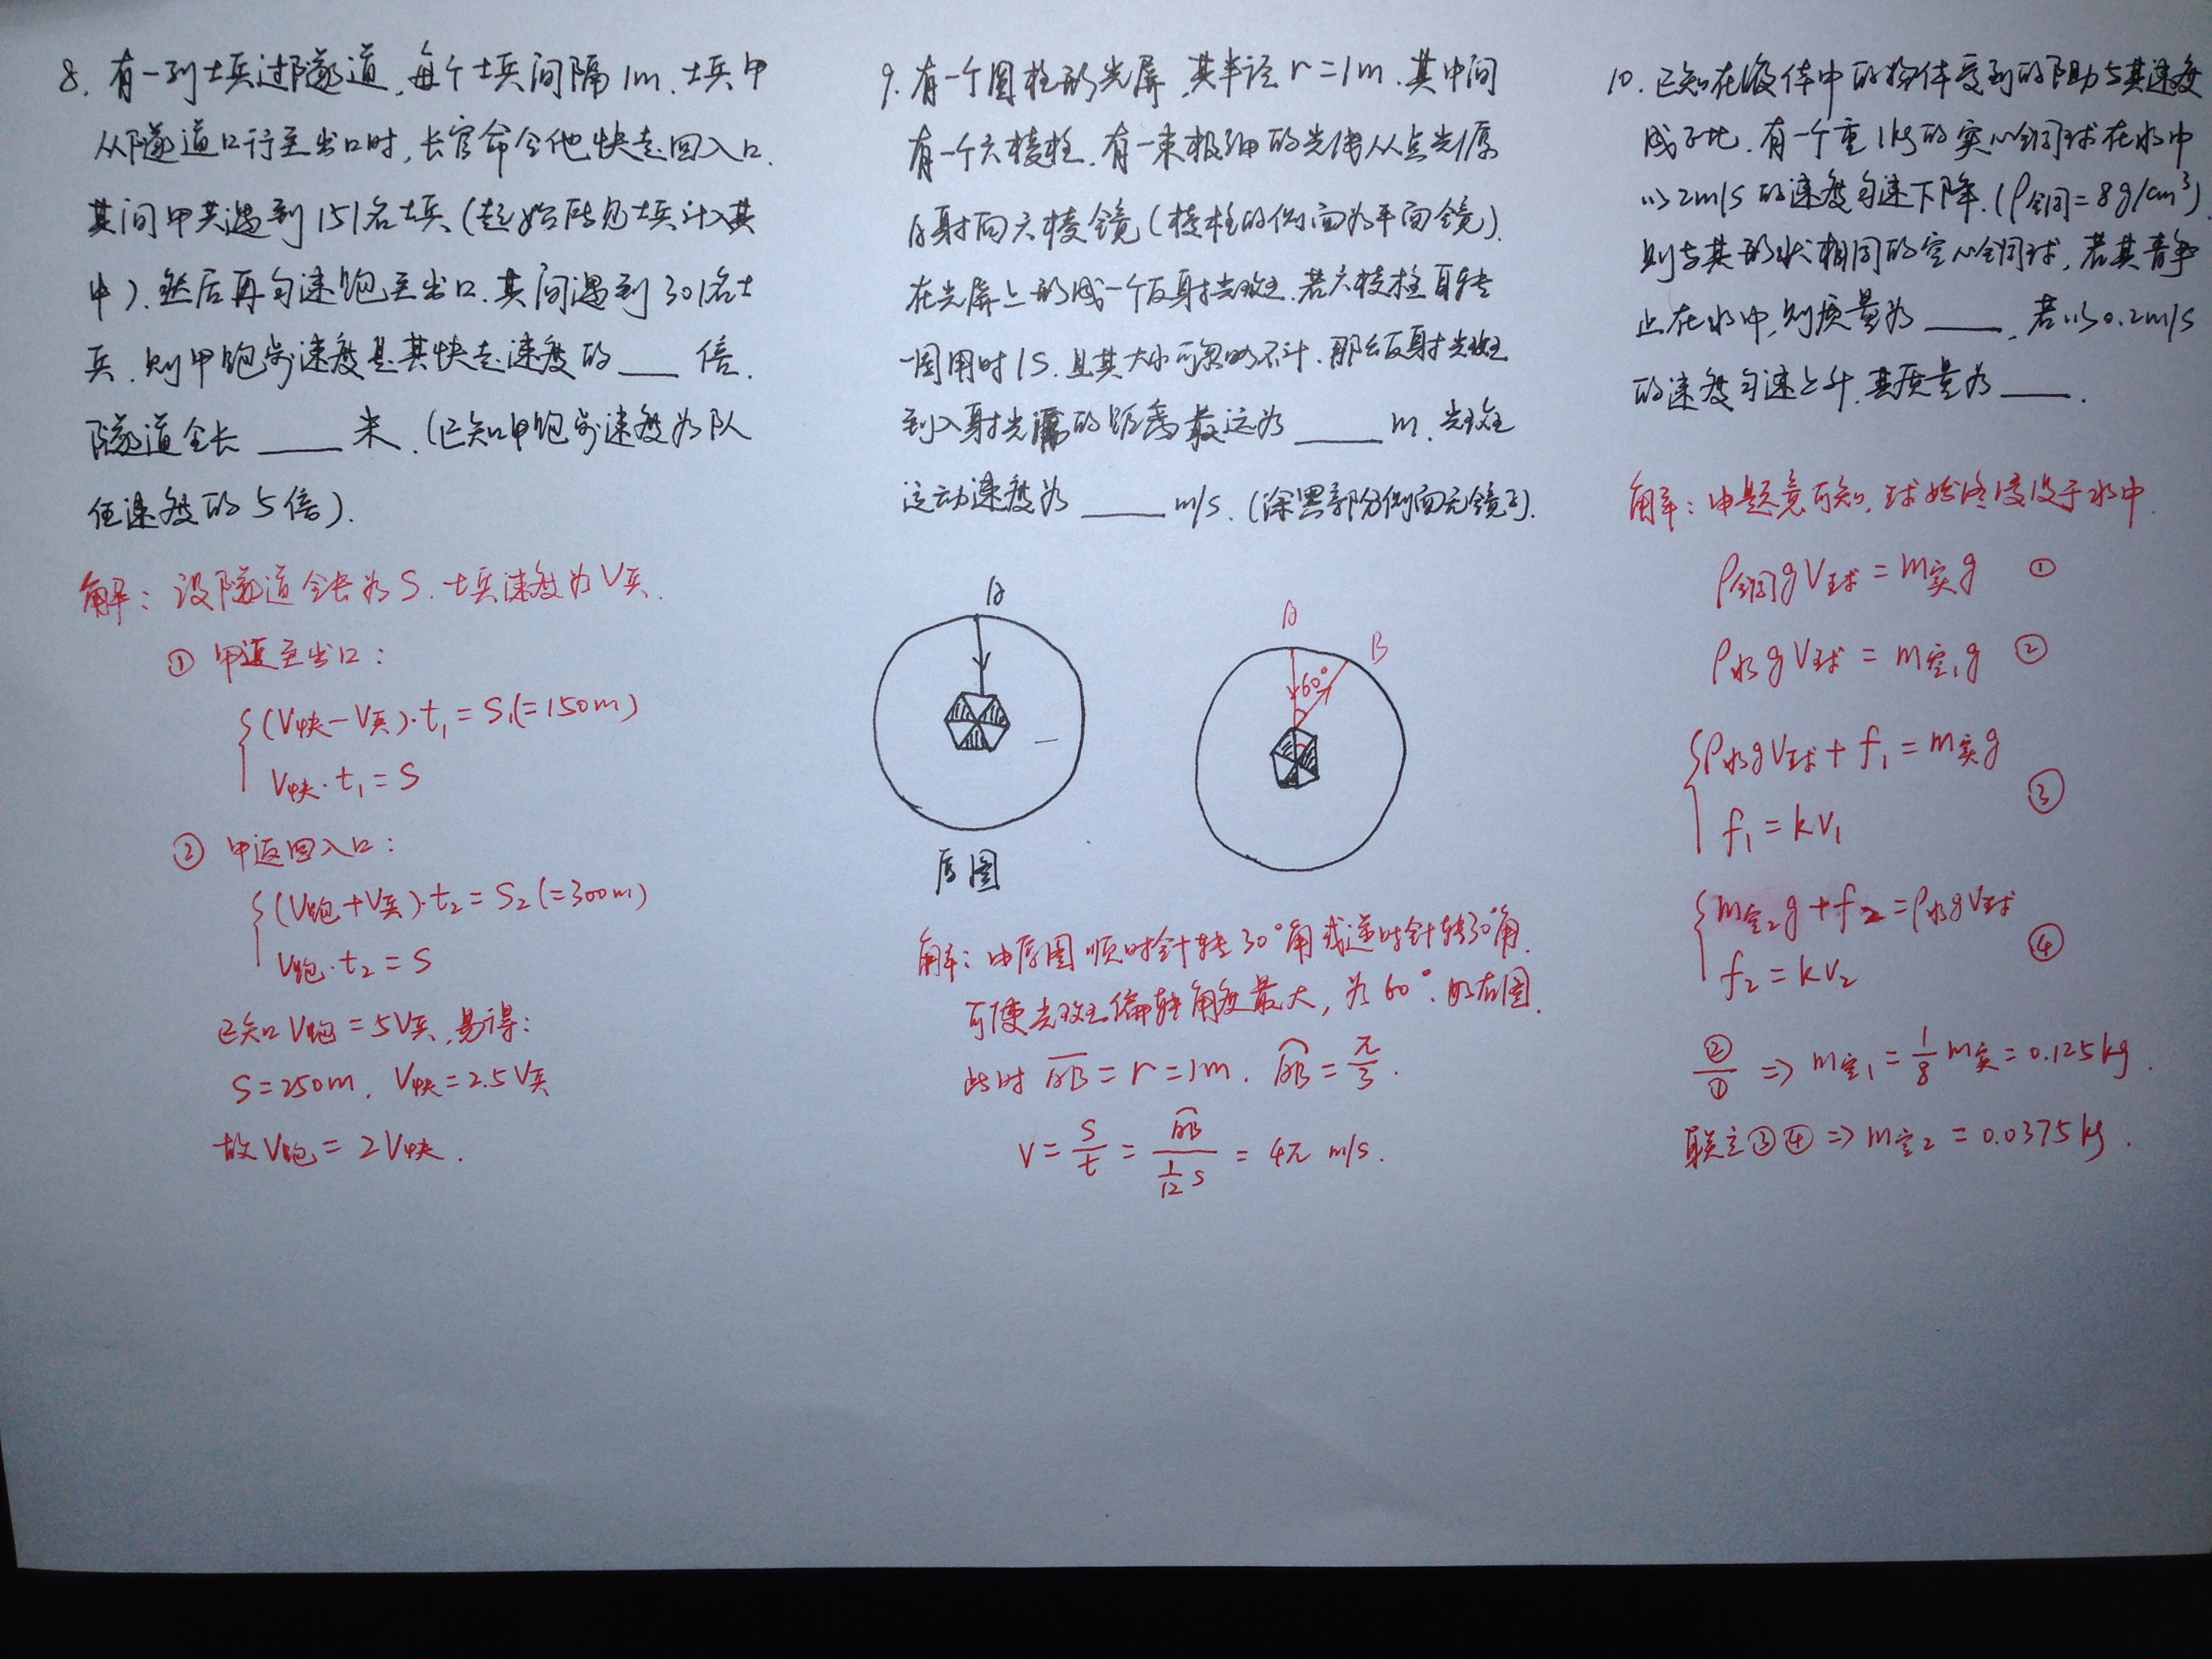 8. 有一列士兵过隧道,每个士兵间隔1m.士兵甲
从隧道口行至出口时,长官命令他快走回入口.
其间甲共遇到151名士兵(起始所见士兵计入其
中).然后再匀速跑至出口.其间遇到301名士
兵.则甲跑步速度是其快走速度的___倍.
隧道全长____米.(已知甲跑步速度为队
伍速度的5倍).
解:设隧道全长为S.士兵速度为V兵.
① 甲返至出口:
(V快-V兵)·t₁=S₁(=150m)
V快·t₁=S
② 甲返回入口:
(V跑+V兵)·t₂=S₂(=300m)
V跑·t₂=S
已知V跑=5V兵,易得:
S=250m, V快=2.5V兵
故V跑=2V快.
9. 有一个圆柱形光屏,其半径r=1m.其中间
有一个六棱柱.有一束极细的光线从点光源
A射向六棱镜(棱柱的侧面为平面镜).
在光屏上形成一个反射光斑.若六棱柱自转
一周用时1s.且其大小可忽略不计.那么反射光斑
到入射光源的距离最远为____m.光斑
运动速度为____m/s.(涂黑部分侧面无镜子).
A
原图
A
B
60°
解:由原图顺时针转30°角或逆时针转30°角.
可使光斑偏转角度最大,为60°.如右图.
此时 AB=r=1m. AB=π/3.
V=S/t=AB/(1/12 s)=4π m/s.
10. 已知在液体中的物体受到的阻助与其速度
成正比.有一个重1kg的实心铜球在水中
以2m/s的速度匀速下降.(ρ铜=8g/cm³)
则与其形状相同的空心铜球,若其静
止在水中,则质量为____,若以0.2m/s
的速度匀速上升.其质量为____.
解:由题意可知,球始终浸没于水中.
ρ铜gV球=m实g ①
ρ水gV球=m空₁g ②
ρ水gV球+f₁=m实g
f₁=kv₁ ③
m空₂g+f₂=ρ水gV球
f₂=kv₂ ④
②/① ⇒ m空₁=1/8 m实=0.125kg.
联立③④ ⇒ m空₂=0.0375kg.